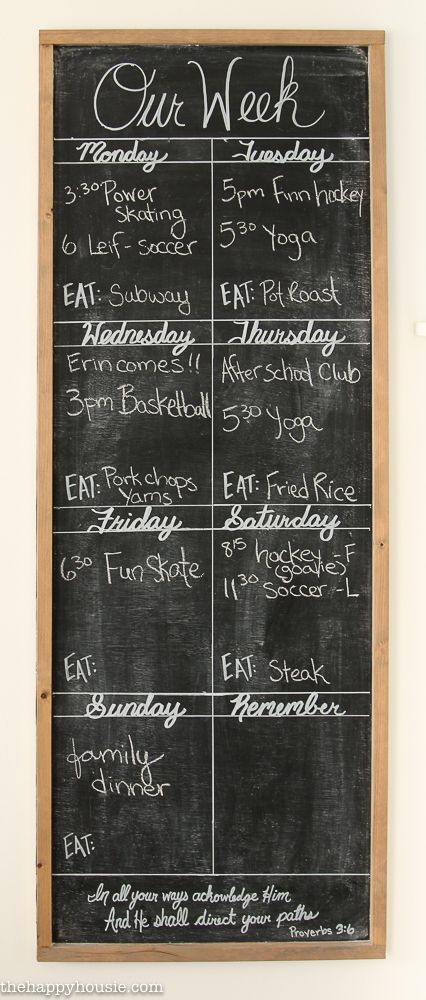 Our Week
Monday
3:30 Power
skating
6 Leif - soccer
EAT: Subway
Tuesday
5pm Finn hockey
5 30 Yoga
EAT: Pot Roast
Wednesday
Erin comes!!
3pm Basketball
EAT: Porkchops
Yams
Thursday
After school Club
5 30 Yoga
EAT: Fried Rice
Friday
6 30 Fun Skate
EAT:
Saturday
8 15 hockey - F
(goalie)
11 30 soccer - L
EAT: Steak
Sunday
family
dinner
EAT:
Remember
In all your ways acknowledge Him
And He shall direct your paths
Proverbs 3:6
thehappyhousie.com